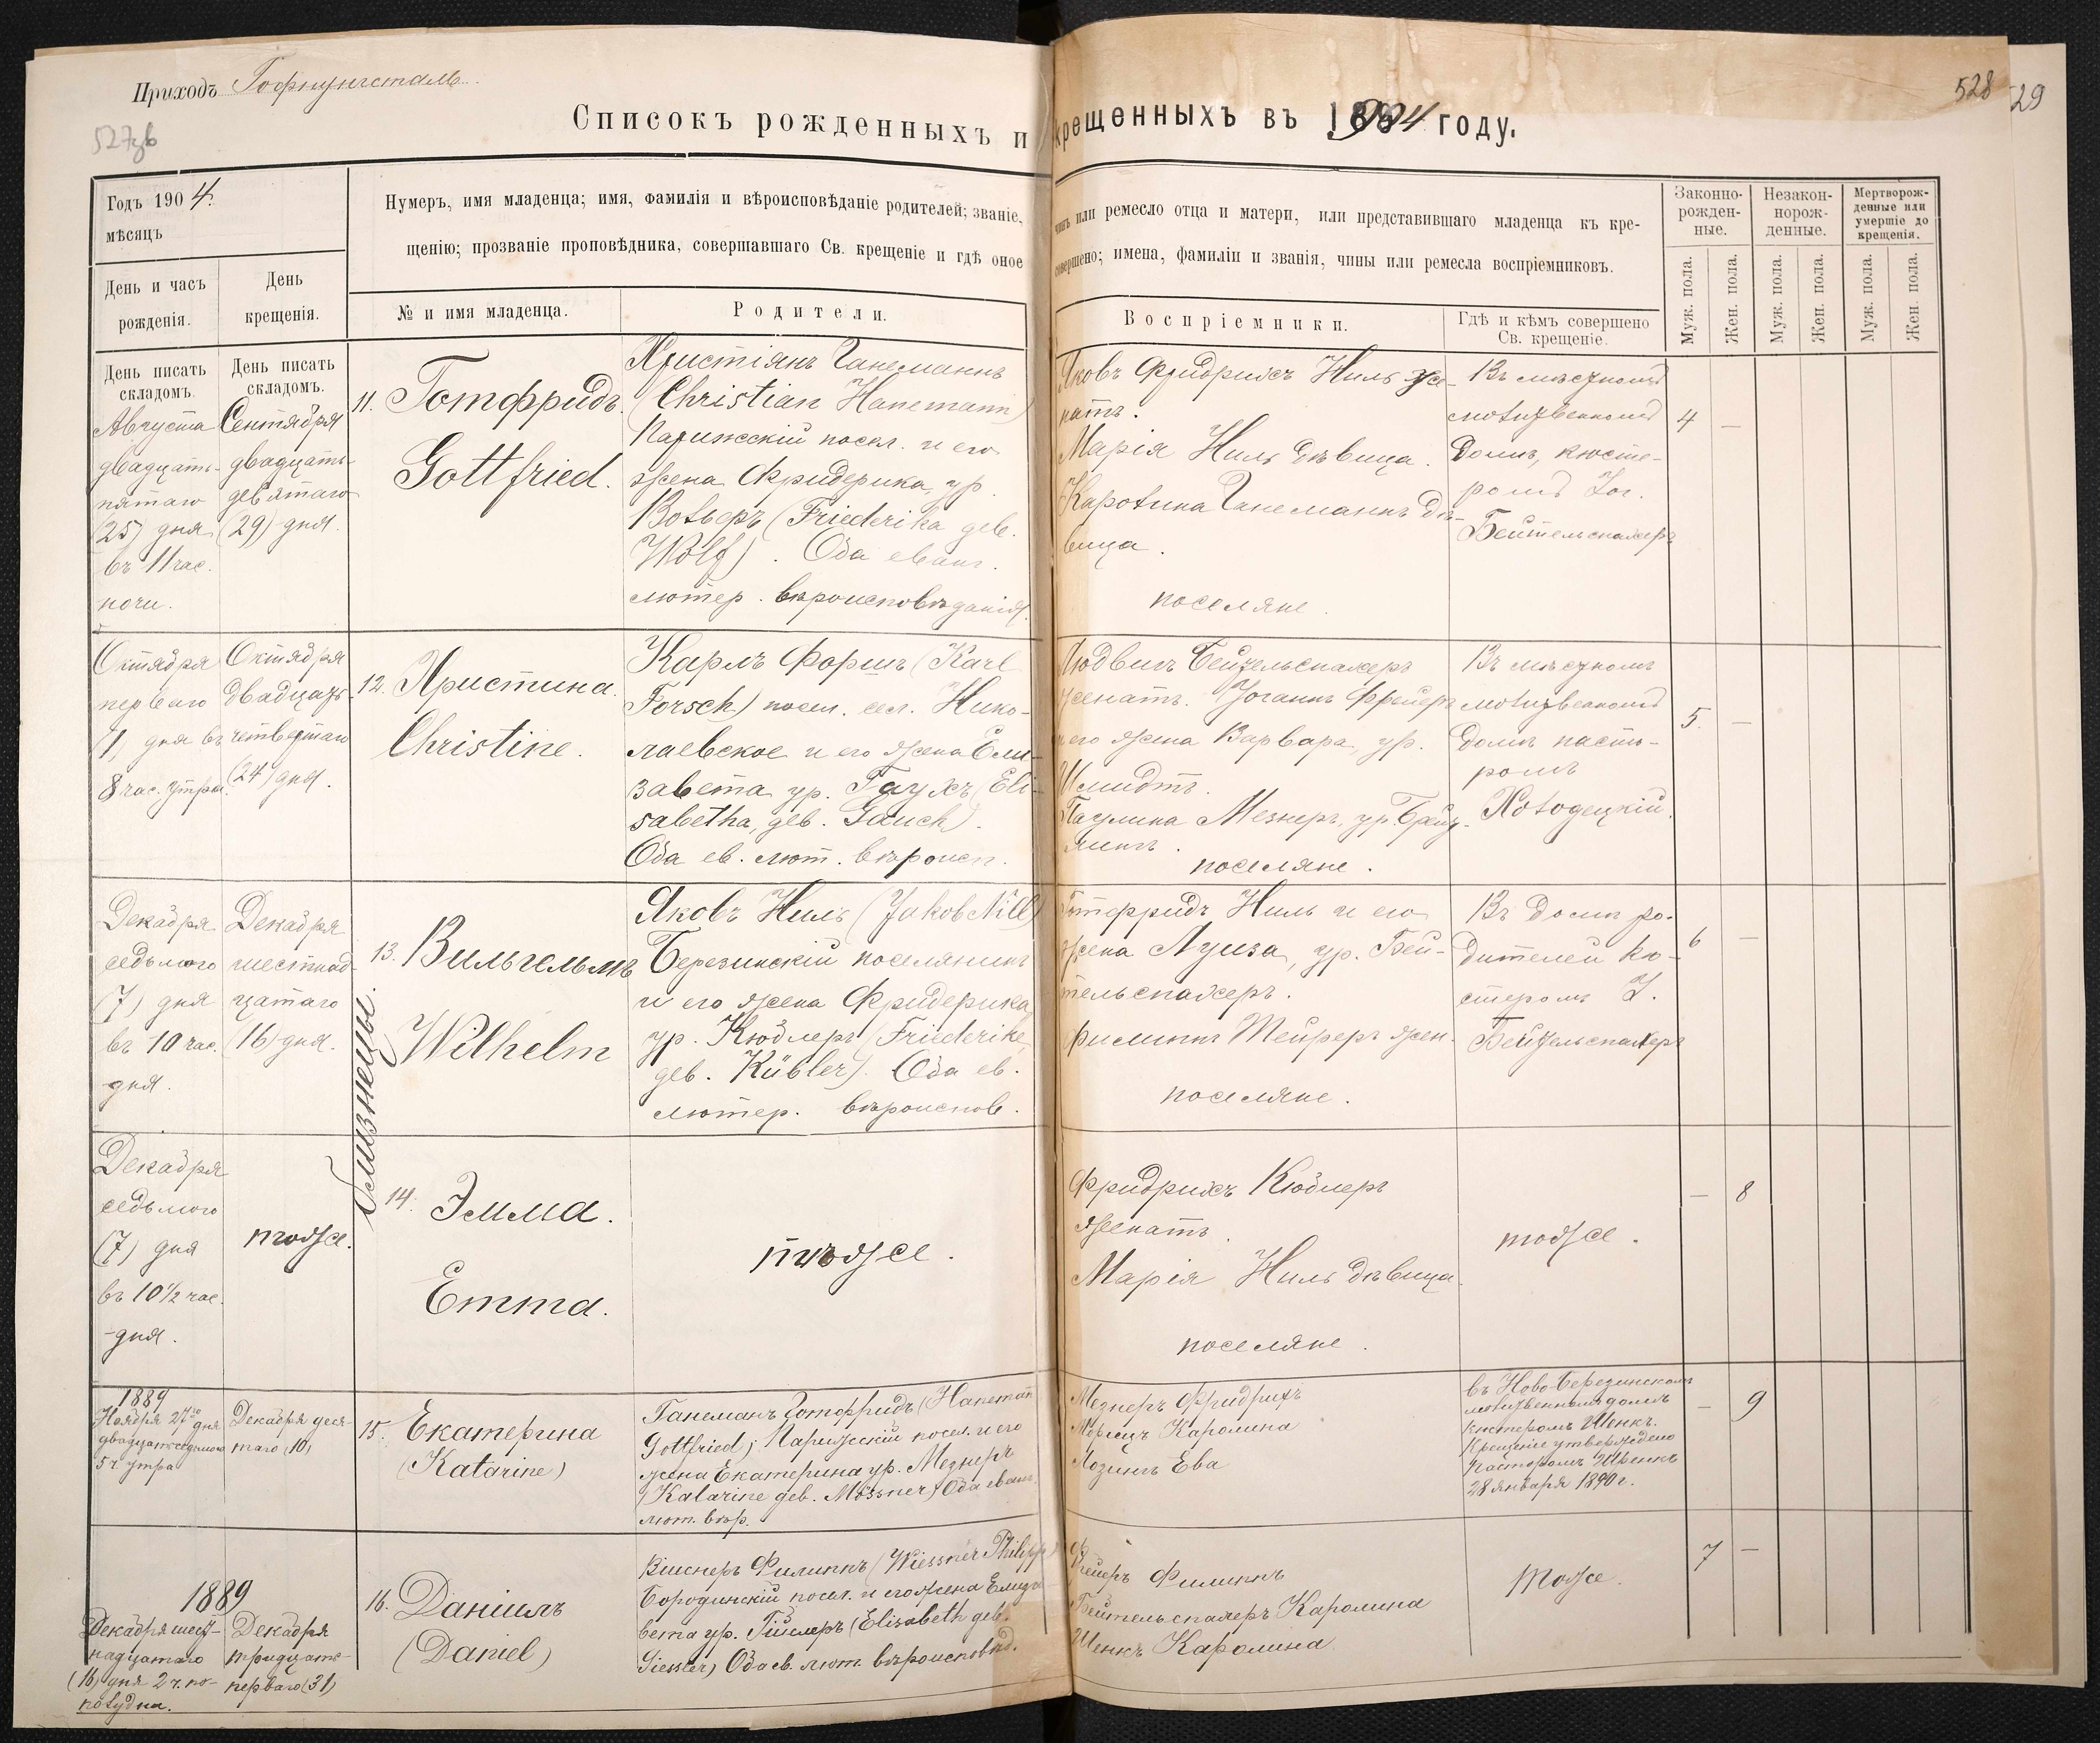 Приходъ Гофнунгсталь
527 об
528
29
Списокъ рожденныхъ и крещенныхъ въ 1904 году.
Годъ 1904.
мѣсяцъ
Нумеръ, имя младенца; имя, фамилія и вѣроисповѣданіе родителей; званіе, чинъ или ремесло отца и матери, или представившаго младенца къ кре-
щенію; прозваніе проповѣдника, совершавшаго Св. крещеніе и гдѣ оное совершено; имена, фамиліи и званія, чины или ремесла воспріемниковъ.
Законно-
рожден-
ные.
Незакон-
норож-
денные.
Мертворож-
денные или
умершіе до
крещенія.
День и часъ
рожденія.
День
крещенія.
№ и имя младенца.
Родители.
Воспріемники.
Гдѣ и кѣмъ совершено
Св. крещеніе.
Муж. пола.
Жен. пола.
Муж. пола.
Жен. пола.
Муж. пола.
Жен. пола.
День писать
складомъ.
Августа
двадцать-
пятаго
(25) дня
въ 11 час.
ночи.
День писать
складомъ.
Сентября
двадцать-
девятаго
(29) дня.
11. Готфридъ.
Gottfried.
Христіянъ Ганеманнъ
(Christian Hanemann)
Парижскій посел. и его
жена Фридерика, ур.
Вольфъ (Friederika geb.
Wolf). Оба еванг.
лютер. вѣроисповѣданія.
Яковъ Фридрихъ Нилъ же-
натъ.
Марія Нилъ дѣвица.
Каролина Ганеманнъ дѣ-
вица.
поселяне.
Въ мѣстномъ
молитвенномъ
домѣ, кюсте-
ромъ Іог.
Бейтельспахеръ
4 —
Октября
перваго
(1) дня въ
8 час. утра.
Октября
двадцать-
четвертаго
(24) дня.
12. Христина.
Christine.
Карлъ Форшъ (Karl
Forsch) посел. сел. Нико-
лаевское и его жена Ели-
завета ур. Гаухъ (Eli-
sabetha, geb. Gauch).
Оба ев. лют. вѣроисп.
Людвигъ Бейтельспахеръ
женатъ. Іоганнъ Фрейеръ
и его жена Варвара, ур.
Шмидтъ.
Паулина Мезнеръ, ур. Брейт-
лингъ.
поселяне.
Въ мѣстномъ
молитвенномъ
домѣ пасто-
ромъ
Холодецкій.
5. —
Декабря
седьмого
(7) дня
въ 10 час.
дня.
Декабря
шестнад-
цатаго
(16) дня.
близнецы.
13. Вильгельмъ
Wilhelm
Яковъ Нилъ (Jakob Nill)
Березинскій поселянинъ
и его жена Фридерика,
ур. Кюблеръ (Friederike,
geb. Kübler). Оба ев.
лютер. вѣроиспов.
Готфридъ Нилъ и его
жена Луиза, ур. Бей-
тельспахеръ.
Филиппъ Тейреръ жен.
поселяне.
Въ домѣ ро-
дителей кю-
стеромъ І.
Бейтельспахеръ
6 —
Декабря
седьмого
(7) дня
въ 10 1/2 час.
дня.
тоже.
14. Эмма.
Emma.
тоже.
Фридрихъ Кюблеръ
женатъ.
Марія Нилъ дѣвица.
поселяне.
тоже.
— 8
1889
Ноября 27го дня
двадцатседьмого
5 ч утра
Декабря деся-
таго (10)
15. Екатерина
(Katarine)
Ганеманъ Готфридъ (Hanemann
Gottfried) Парижскій посел. и его
жена Екатерина ур. Мезнеръ
(Katarine geb. Mössner) Оба еванг.
лют. вѣр.
Мезнеръ Фридрихъ
Морицъ Каролина
Лозингъ Ева
въ Ново-Березинскомъ
молитвенномъ домѣ
кистеромъ Шенкъ.
Крещеніе утверждено
Пасторомъ Шренкъ
28 января 1890 г.
— 9
1889
Декабря шест-
надцатаго
(16) дня 2 ч. по-
полудна.
Декабря
тридцать-
перваго (31)
16. Даніилъ
(Daniel)
Виснеръ Филиппъ (Wiessner Philipp)
Бородинскій посел. и его жена Елиза-
вета ур. Гислеръ (Elisabeth geb.
Giessler) Оба ев. лют. вѣроисповѣд.
Филиппъ
Бейтельспахеръ Каролина
Шенкъ Каролина
тоже.
7 —